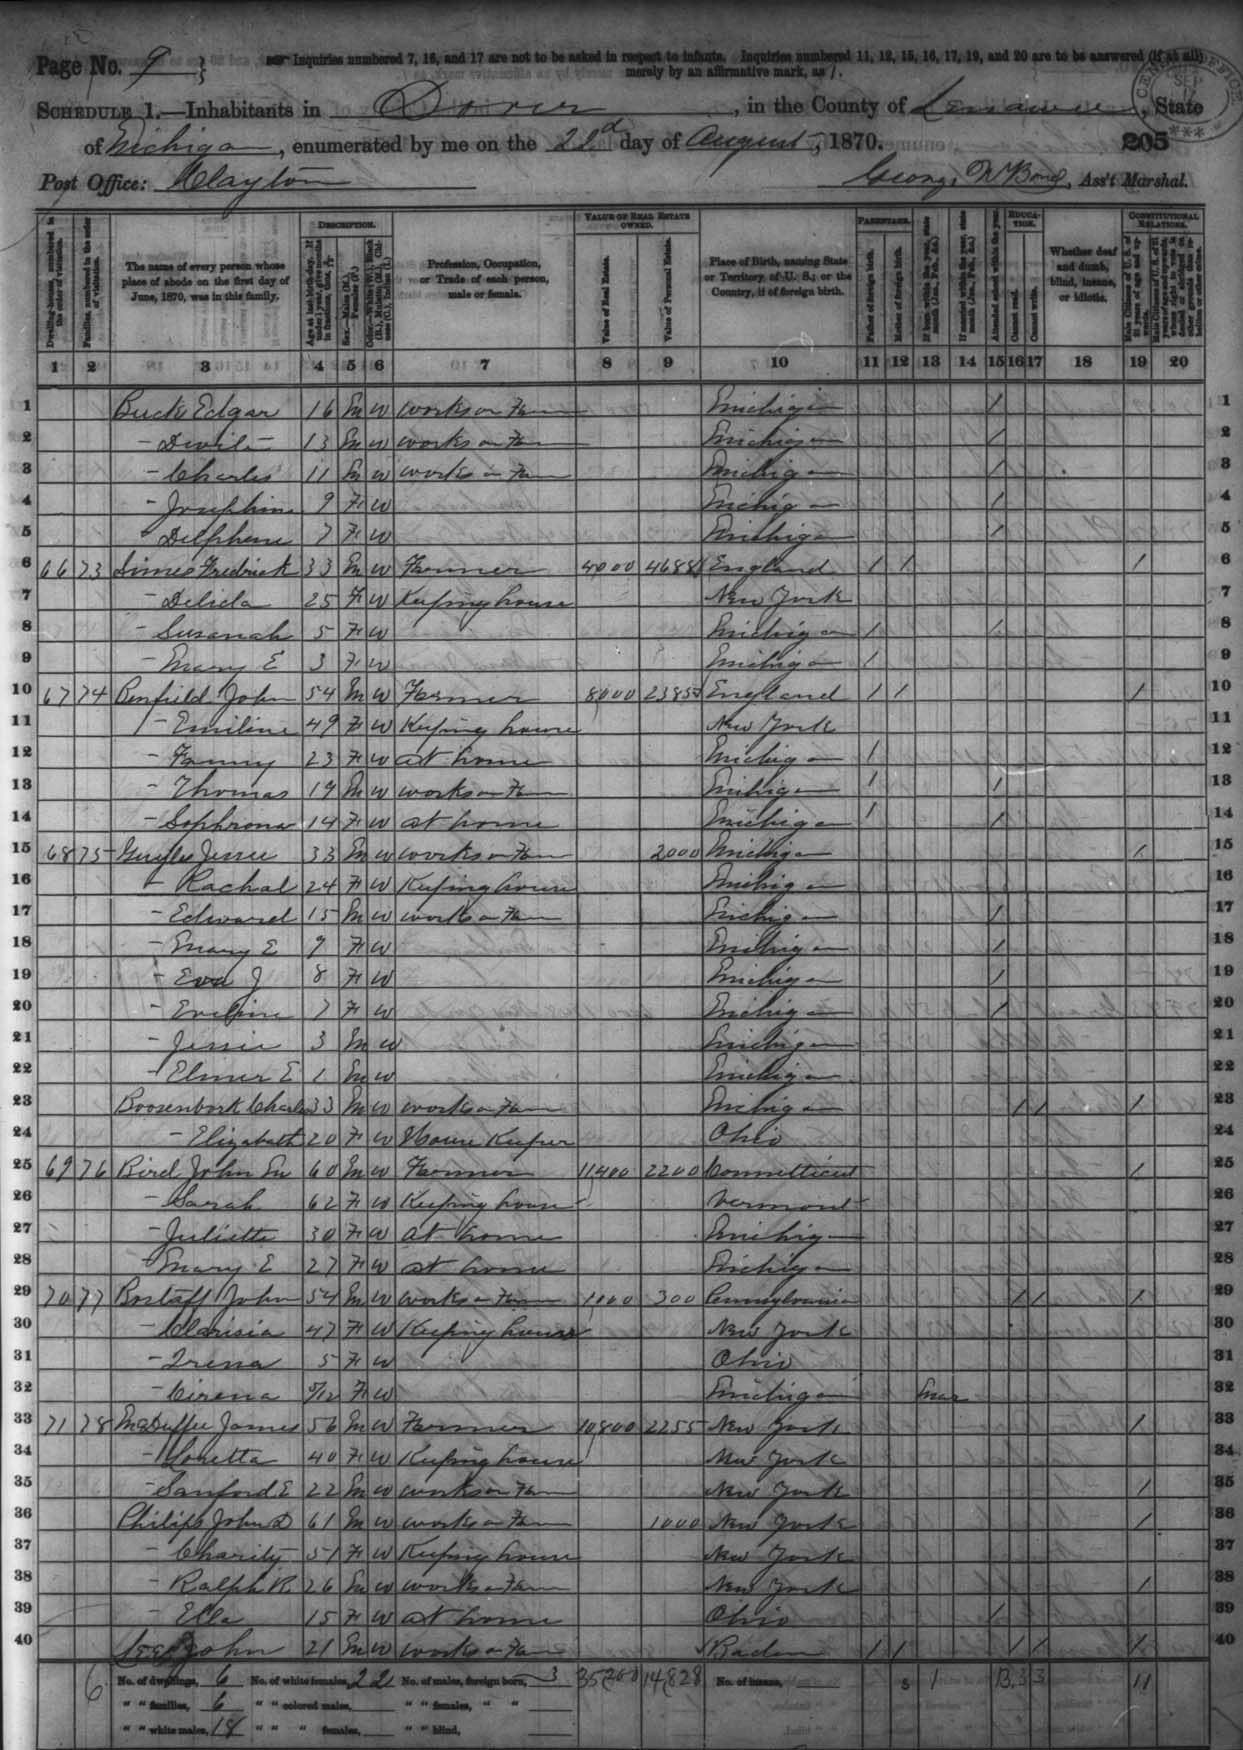 Page No. 9 } Inquiries numbered 7, 16, and 17 are not to be asked in respect to infants. Inquiries numbered 11, 12, 15, 16, 17, 19, and 20 are to be answered (if at all)
merely by an affirmative mark, as /.
SCHEDULE 1.—Inhabitants in Dover, in the County of Lenawee, State
of Michigan, enumerated by me on the 22d day of August, 1870. 205
Post Office: Clayton George W Bond, Ass't Marshal.
DESCRIPTION. VALUE OF REAL ESTATE OWNED. PARENTAGE. EDUCATION. CONSTITUTIONAL RELATIONS.
Dwelling-houses, numbered in the order of visitation.
Families, numbered in the order of visitation.
The name of every person whose place of abode on the first day of June, 1870, was in this family.
Profession, Occupation, or Trade of each person, male or female.
Value of Real Estate.
Value of Personal Estate.
Place of Birth, naming State or Territory of U. S.; or the Country, if of foreign birth.
Father of foreign birth.
Mother of foreign birth.
Attended school within the year.
Cannot read.
Cannot write.
Whether deaf and dumb, blind, insane, or idiotic.
1 2 3 4 5 6 7 8 9 10 11 12 13 14 15 16 17 18 19 20
1 Buck Edgar 16 M W works on Farm Michigan / 1
2 – 13 M W works on Farm Michigan / 2
3 – Charles 11 M W works on Farm Michigan / 3
4 – Josephine 9 F W Michigan / 4
5 – Delphene 7 F W Michigan / 5
6 66 73 Simes Fredrick 33 M W Farmer 4000 England / / / 6
7 – Delida 25 F W Keeping house New York 7
8 – Susanah 5 F W Michigan / / 8
9 – Mary E 3 F W Michigan / 9
10 67 74 Benfield John 54 M W Farmer 8000 2385 England / / / 10
11 – Emiline 49 F W Keeping house New York 11
12 – Fanny 23 F W at home Michigan / 12
13 – Thomas 19 M W works on Farm Michigan / / 13
14 – Sophrona 14 F W at home Michigan / / 14
15 68 75 Jesse 33 M W works on Farm 2000 Michigan / 15
16 – Rachal 24 F W Keeping house Michigan 16
17 – Edward 15 M W works on Farm Michigan / 17
18 – Mary E 9 F W Michigan / 18
19 – Eva J 8 F W Michigan / 19
20 – Eveline 7 F W Michigan / 20
21 – Jessie 3 M W Michigan 21
22 – Elmer E 1 M W Michigan 22
23 Boosenbork Charles 33 M W works on Farm Michigan / / / 23
24 – Elizabeth 20 F W House Keeper Ohio 24
25 69 76 Bird John M 60 M W Farmer 11400 2200 Connetticut / 25
26 – Sarah 62 F W Keeping house Vermont 26
27 – Juliette 30 F W at home Michigan 27
28 – Mary E 27 F W at home Michigan 28
29 70 77 Bostaff John 54 M W works on Farm 1000 300 Pennsylvania / / / 29
30 – Clarisia 47 F W Keeping house New York 30
31 – Irena 5 F W Ohio 31
32 – Cirena 3/12 F W Michigan Mar 32
33 71 78 McDuffee James 56 M W Farmer 10800 2255 New York / 33
34 – Loretta 40 F W Keeping house New York 34
35 – Sanford E 22 M W works on Farm New York / 35
36 Philips John D 61 M W works on Farm 1000 New York / 36
37 – Charity 51 F W Keeping house New York 37
38 – Ralph R. 26 M W works on Farm New York / 38
39 – Ella 15 F W at home Ohio / 39
40 Lee John 21 M W works on Farm Baden / / / / / 40
6 No. of dwellings, 6 No. of white females, 22 No. of males, foreign born, 3 35,200 14,828 No. of insane, 5 1 13 3 3 11
" " families, 6 " " colored males, " " females, " "
" " white males, 18 " " " females, " " blind,